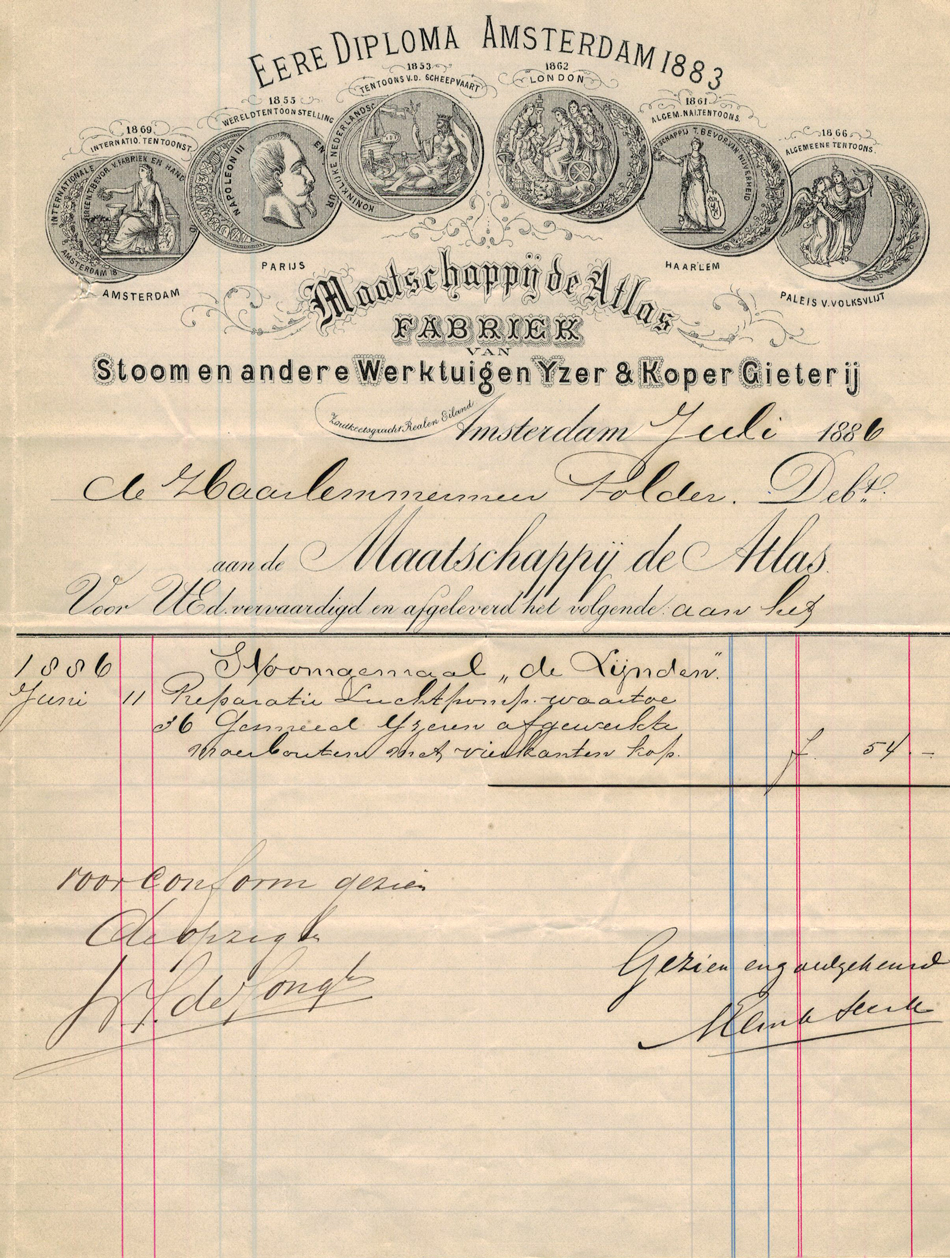 EERE DIPLOMA AMSTERDAM 1883
1869.
INTERNATIO. TENTOONST.
INTERNATIONALE
AMSTERDAM 18
AMSTERDAM
1855
WERELDTENTOONSTELLING
NAPOLEON III
EMPEREUR
PARIJS
1853
TENTOONS V.D. SCHEEPVAART
KONINKLIJKE NEDERLANDSC
1862
LONDON
1861
ALGEM. NAT. TENTOONS.
T. BEVOR. VAN NIJVERHEID
HAARLEM
1866
ALGEMEENE TENTOONS.
PALEIS V. VOLKSVLIJT
Maatschappij de Atlas
FABRIEK
VAN
Stoom en andere Werktuigen Yzer & Koper Gieterij
Zoutkeetsgracht Realen Eiland
Amsterdam Juli 1886
de Haarlemmermeer Polder. Debt.
aan de Maatschappij de Atlas.
Voor UEd. vervaardigd en afgeleverd het volgende: aan het
1886 Stoomgemaal „de Lijnden".
Juni 11 Reparatie Luchtpomp. waartoe
36 Gesmeed Yzeren afgewerkte
moerbouten met vierkanten kop. f 54.–
voor conform gezien
de opzigter
de Jongh
Gezien en goedgekeurd